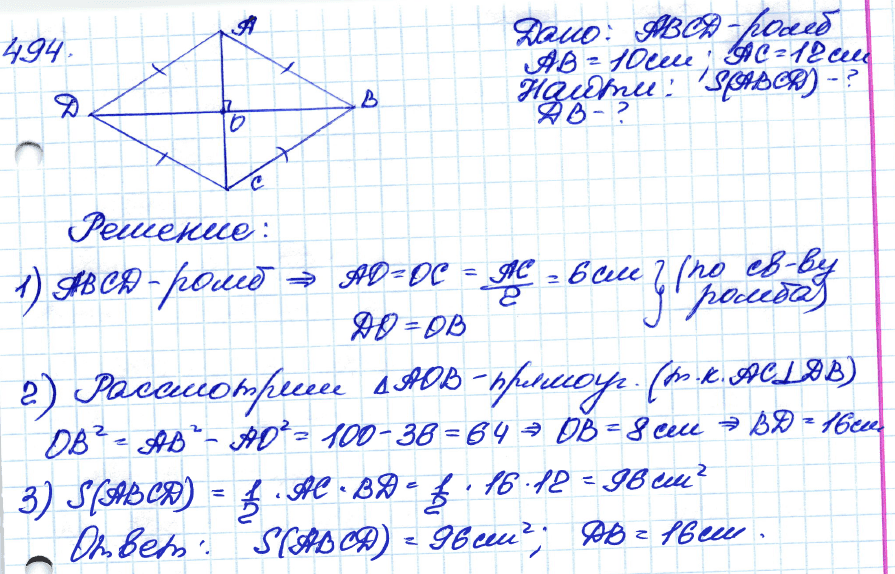 494.
A
D
B
O
C
Дано: ABCD - ромб
AB = 10 см; AC = 12 см
Найти: S(ABCD) - ?
DB - ?
Решение:
1) ABCD - ромб ⇒ AO = OC = AC/2 = 6 см } (по св-ву
DO = OB ромба)
2) Рассмотрим △AOB - прямоуг. (т.к. AC⊥DB)
OB² = AB² - AO² = 100 - 36 = 64 ⇒ OB = 8 см ⇒ BD = 16 см
3) S(ABCD) = 1/2 · AC · BD = 1/2 · 16 · 12 = 96 см²
Ответ: S(ABCD) = 96 см²; DB = 16 см.